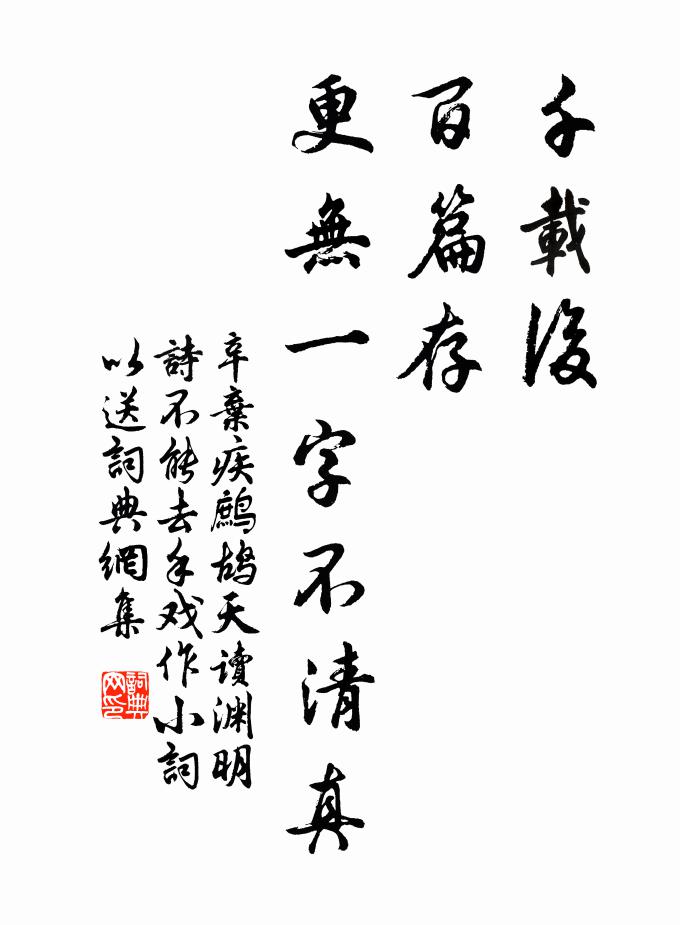 千載後
百篇存
更無一字不清真
辛棄疾鷓鴣天讀渊明
詩不能去手戏作小詞
以送詞典網集
詞典网印